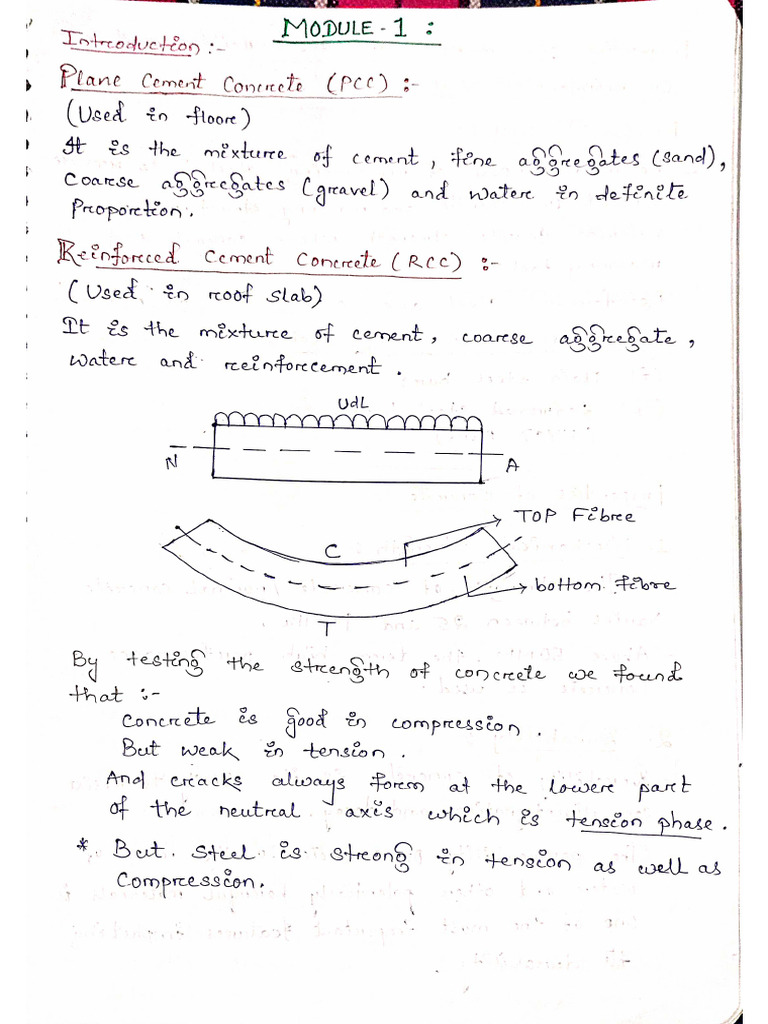 MODULE - 1 :
Introduction :-
Plane Cement Concrete (PCC) :-
(Used in floor)
It is the mixture of cement, fine aggregates (sand),
coarse aggregates (gravel) and water in definite
Proportion.
Reinforced Cement Concrete (RCC) :-
(Used in roof slab)
It is the mixture of cement, coarse aggregate,
water and reinforcement.
UdL
N
A
TOP Fibre
C
bottom fibre
T
By testing the strength of concrete we found
that :-
Concrete is good in compression.
But weak in tension.
And cracks always form at the lower part
of the neutral axis which is tension phase.
* But steel is strong in tension as well as
Compression.